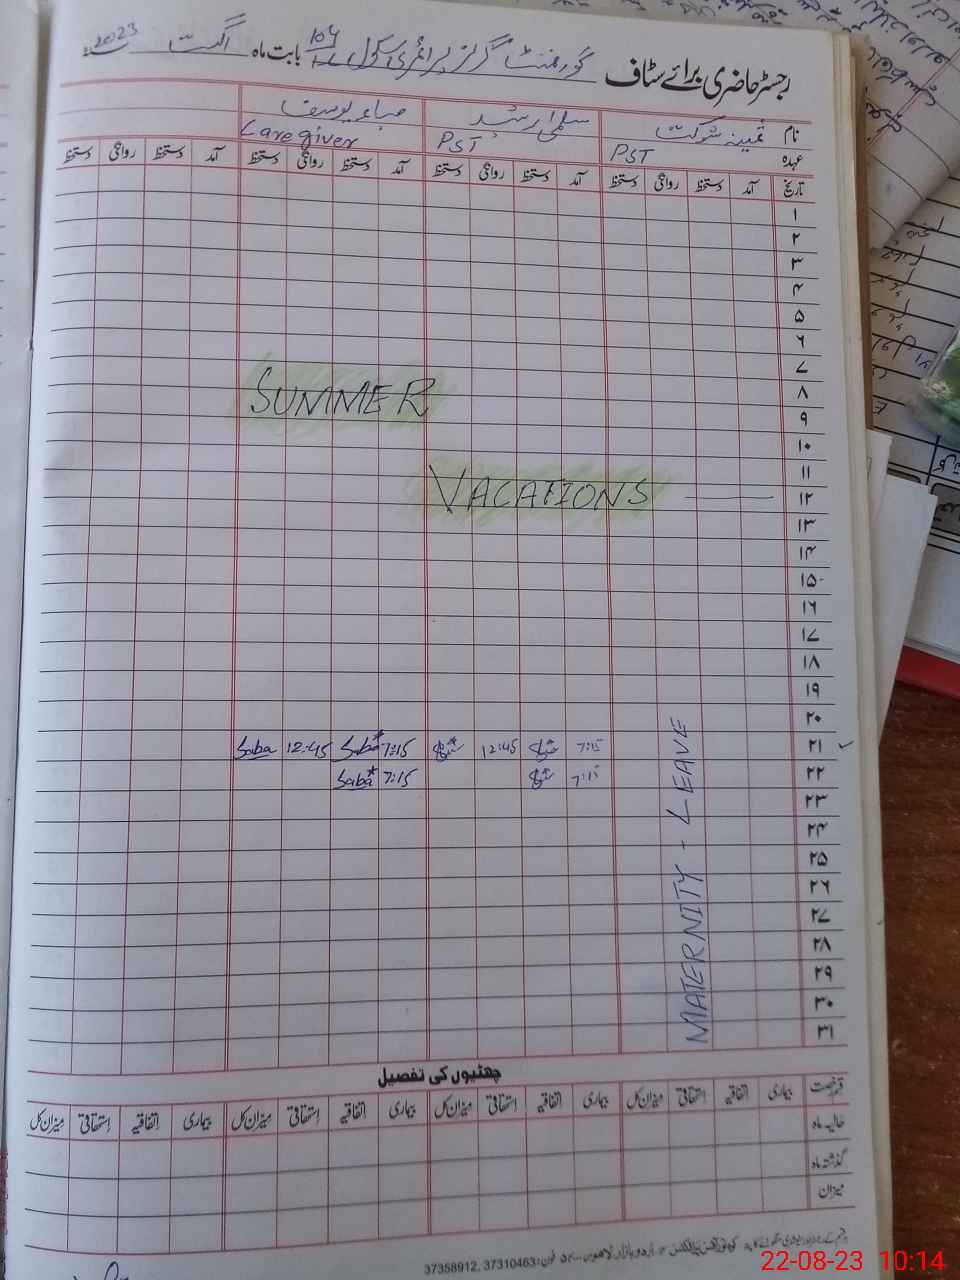 رجسٹر حاضری برائے سٹاف گورنمنٹ گرلز پرائمری سکول 104 بابت ماہ اگست 2023
نام ثمینہ شوکت سلمیٰ ارشد صباء یوسف
عہدہ PST PST Caregiver
تاریخ آمد دستخط روانگی دستخط آمد دستخط روانگی دستخط آمد دستخط روانگی دستخط آمد دستخط روانگی دستخط
۱
۲
۳
۴
۵
۶
۷
۸
SUMMER
۹
۱۰
۱۱
۱۲
VACATIONS
۱۳
۱۴
۱۵
۱۶
۱۷
۱۸
۱۹
۲۰
۲۱ 7:15 12:45 7:15 Saba 12:45 Saba
۲۲ 7:15 7:15 Saba
۲۳
۲۴
۲۵
۲۶
۲۷
۲۸
۲۹
۳۰
۳۱
MATERNITY - LEAVE
چھٹیوں کی تفصیل
قسم رخصت بیماری اتفاقیہ استحقاقی میزان کل بیماری اتفاقیہ استحقاقی میزان کل بیماری اتفاقیہ استحقاقی میزان کل بیماری اتفاقیہ استحقاقی میزان کل
حالیہ ماہ
گذشتہ ماہ
میزان
اردو بازار لاہور فون: 37310463, 37358912
22-08-23 10:14